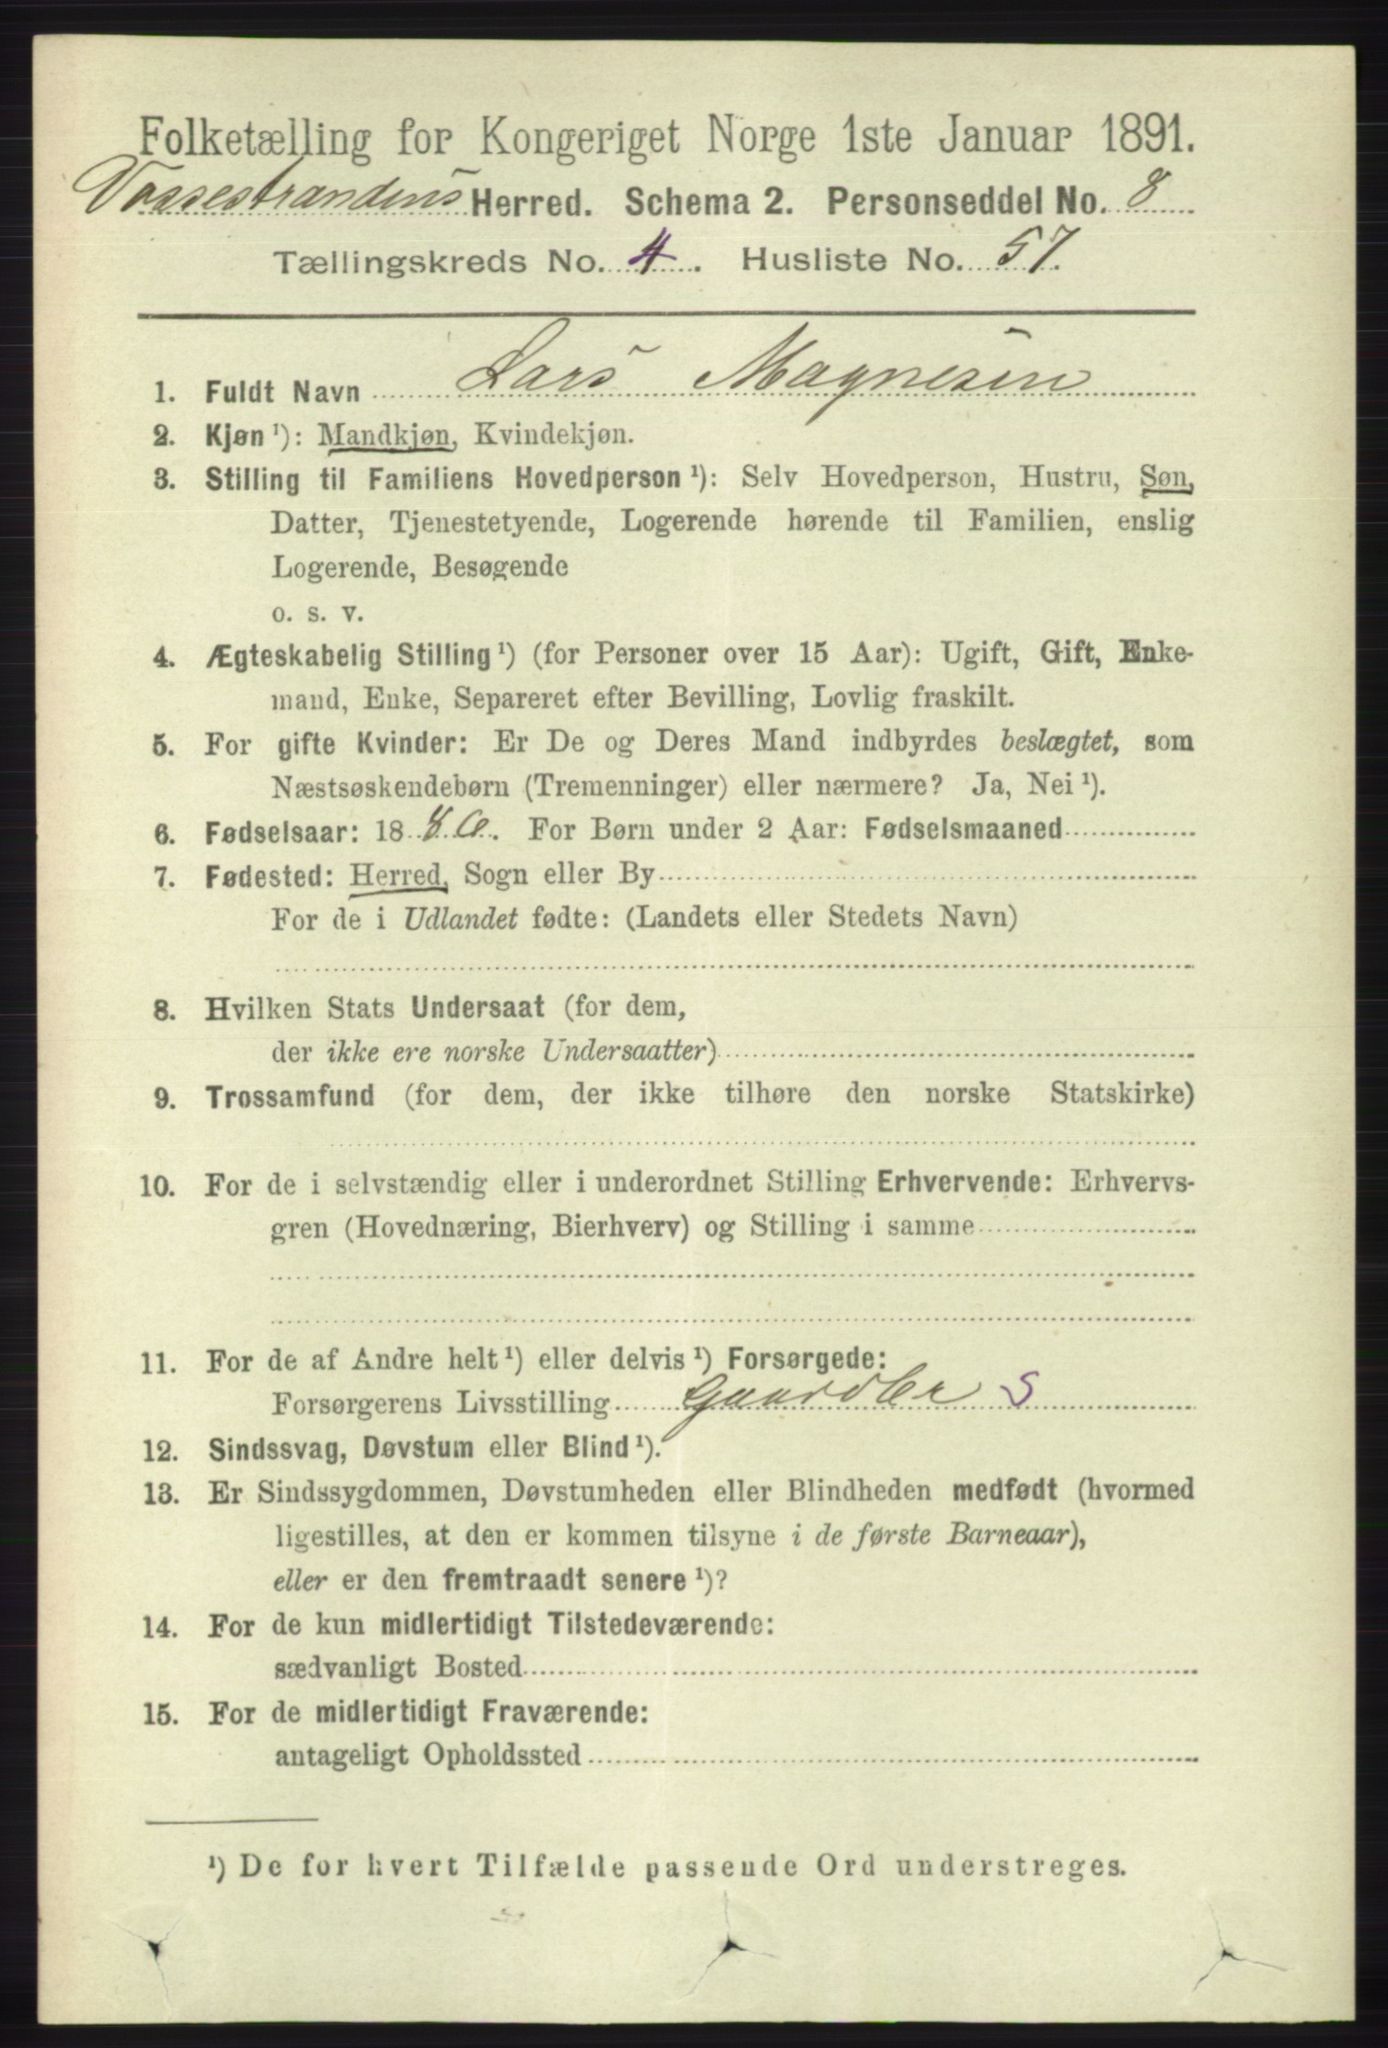 Folketælling for Kongeriget Norge 1ste Januar 1891.
Vossestrandens Herred. Schema 2. Personseddel No. 8
Tællingskreds No. 4. Husliste No. 57.
1. Fuldt Navn Lars Magnesen
2. Kjøn ¹): Mandkjøn, Kvindekjøn.
3. Stilling til Familiens Hovedperson ¹): Selv Hovedperson, Hustru, Søn,
Datter, Tjenestetyende, Logerende hørende til Familien, enslig
Logerende, Besøgende
o. s. v.
4. Ægteskabelig Stilling ¹) (for Personer over 15 Aar): Ugift, Gift, Enke-
mand, Enke, Separeret efter Bevilling, Lovlig fraskilt.
5. For gifte Kvinder: Er De og Deres Mand indbyrdes beslægtet, som
Næstsøskendebørn (Tremenninger) eller nærmere? Ja, Nei ¹).
6. Fødselsaar: 18 For Børn under 2 Aar: Fødselsmaaned
7. Fødested: Herred, Sogn eller By
For de i Udlandet fødte: (Landets eller Stedets Navn)
8. Hvilken Stats Undersaat (for dem,
der ikke ere norske Undersaatter)
9. Trossamfund (for dem, der ikke tilhøre den norske Statskirke)
10. For de i selvstændig eller i underordnet Stilling Erhvervende: Erhvervs-
gren (Hovednæring, Bierhverv) og Stilling i samme
11. For de af Andre helt ¹) eller delvis ¹) Forsørgede:
Forsørgerens Livsstilling Gaardbr S
12. Sindssvag, Døvstum eller Blind ¹).
13. Er Sindssygdommen, Døvstumheden eller Blindheden medfødt (hvormed
ligestilles, at den er kommen tilsyne i de første Barneaar),
eller er den fremtraadt senere ¹)?
14. For de kun midlertidigt Tilstedeværende:
sædvanligt Bosted
15. For de midlertidigt Fraværende:
antageligt Opholdssted
¹) De for hvert Tilfælde passende Ord understreges.